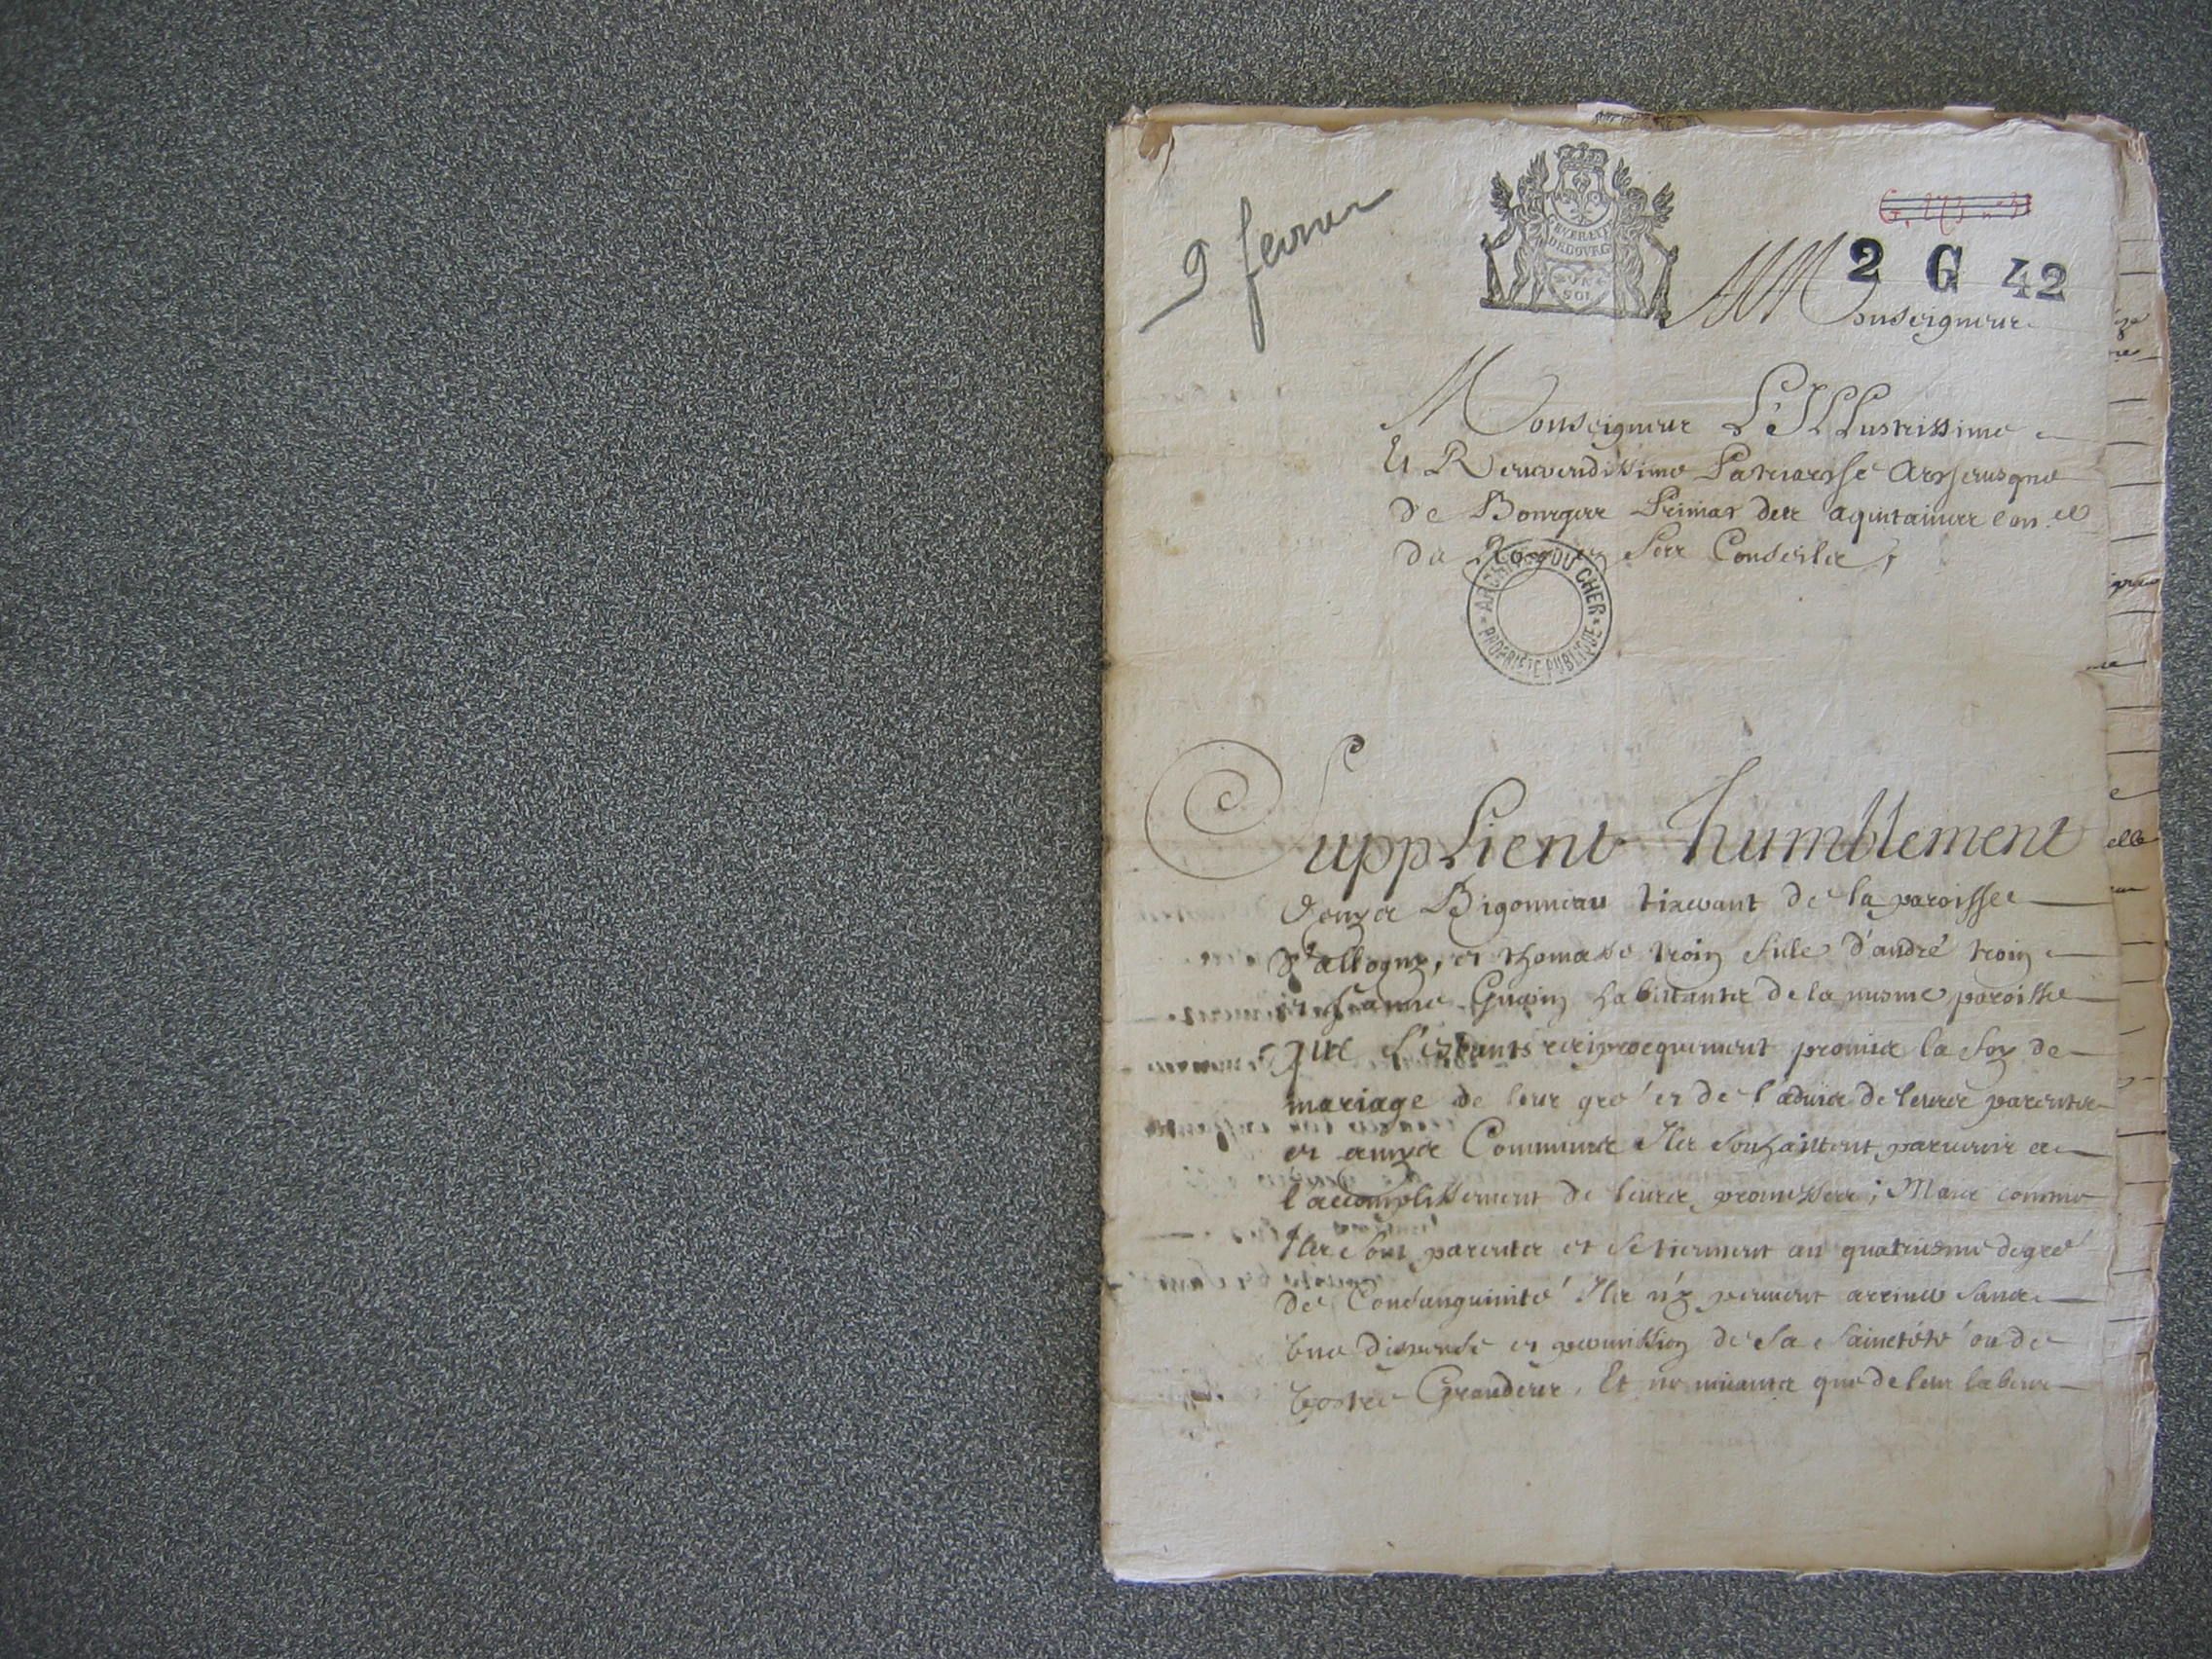 9 fevrier
GENERALITE
DE BOVRGES
VN
SOL
2 G 42
A Monseigneur
Monseigneur L'Illustrissime
Et Reverendissime Patriarche Archevesque
de Bourges Primat des aquitaines Con.er
du Roy en Ses Conseils,
ARCHIVES DU CHER
PROPRIÉTÉ PUBLIQUE
Supplient humblement
Bigonneau de la paroisse
St allogny, et thomasse troin fille d'andré troin
et Jeanne habitants de la mesme paroisse
que s'estants reciproquement promis la foy de
mariage de leur gré et de l'advis de leurs parents
et amys Communs Ils souhaittent parvenir a
l'accomplissement de leurs promesses; Mais comme
Ils sont parents et se tiennent au quatriesme degré
de Consanguinité Ils n'y peuvent arriver sans
une dispense et permission de Sa Saincteté ou de
vostre Grandeur, Et ne vivants que de leur labeur